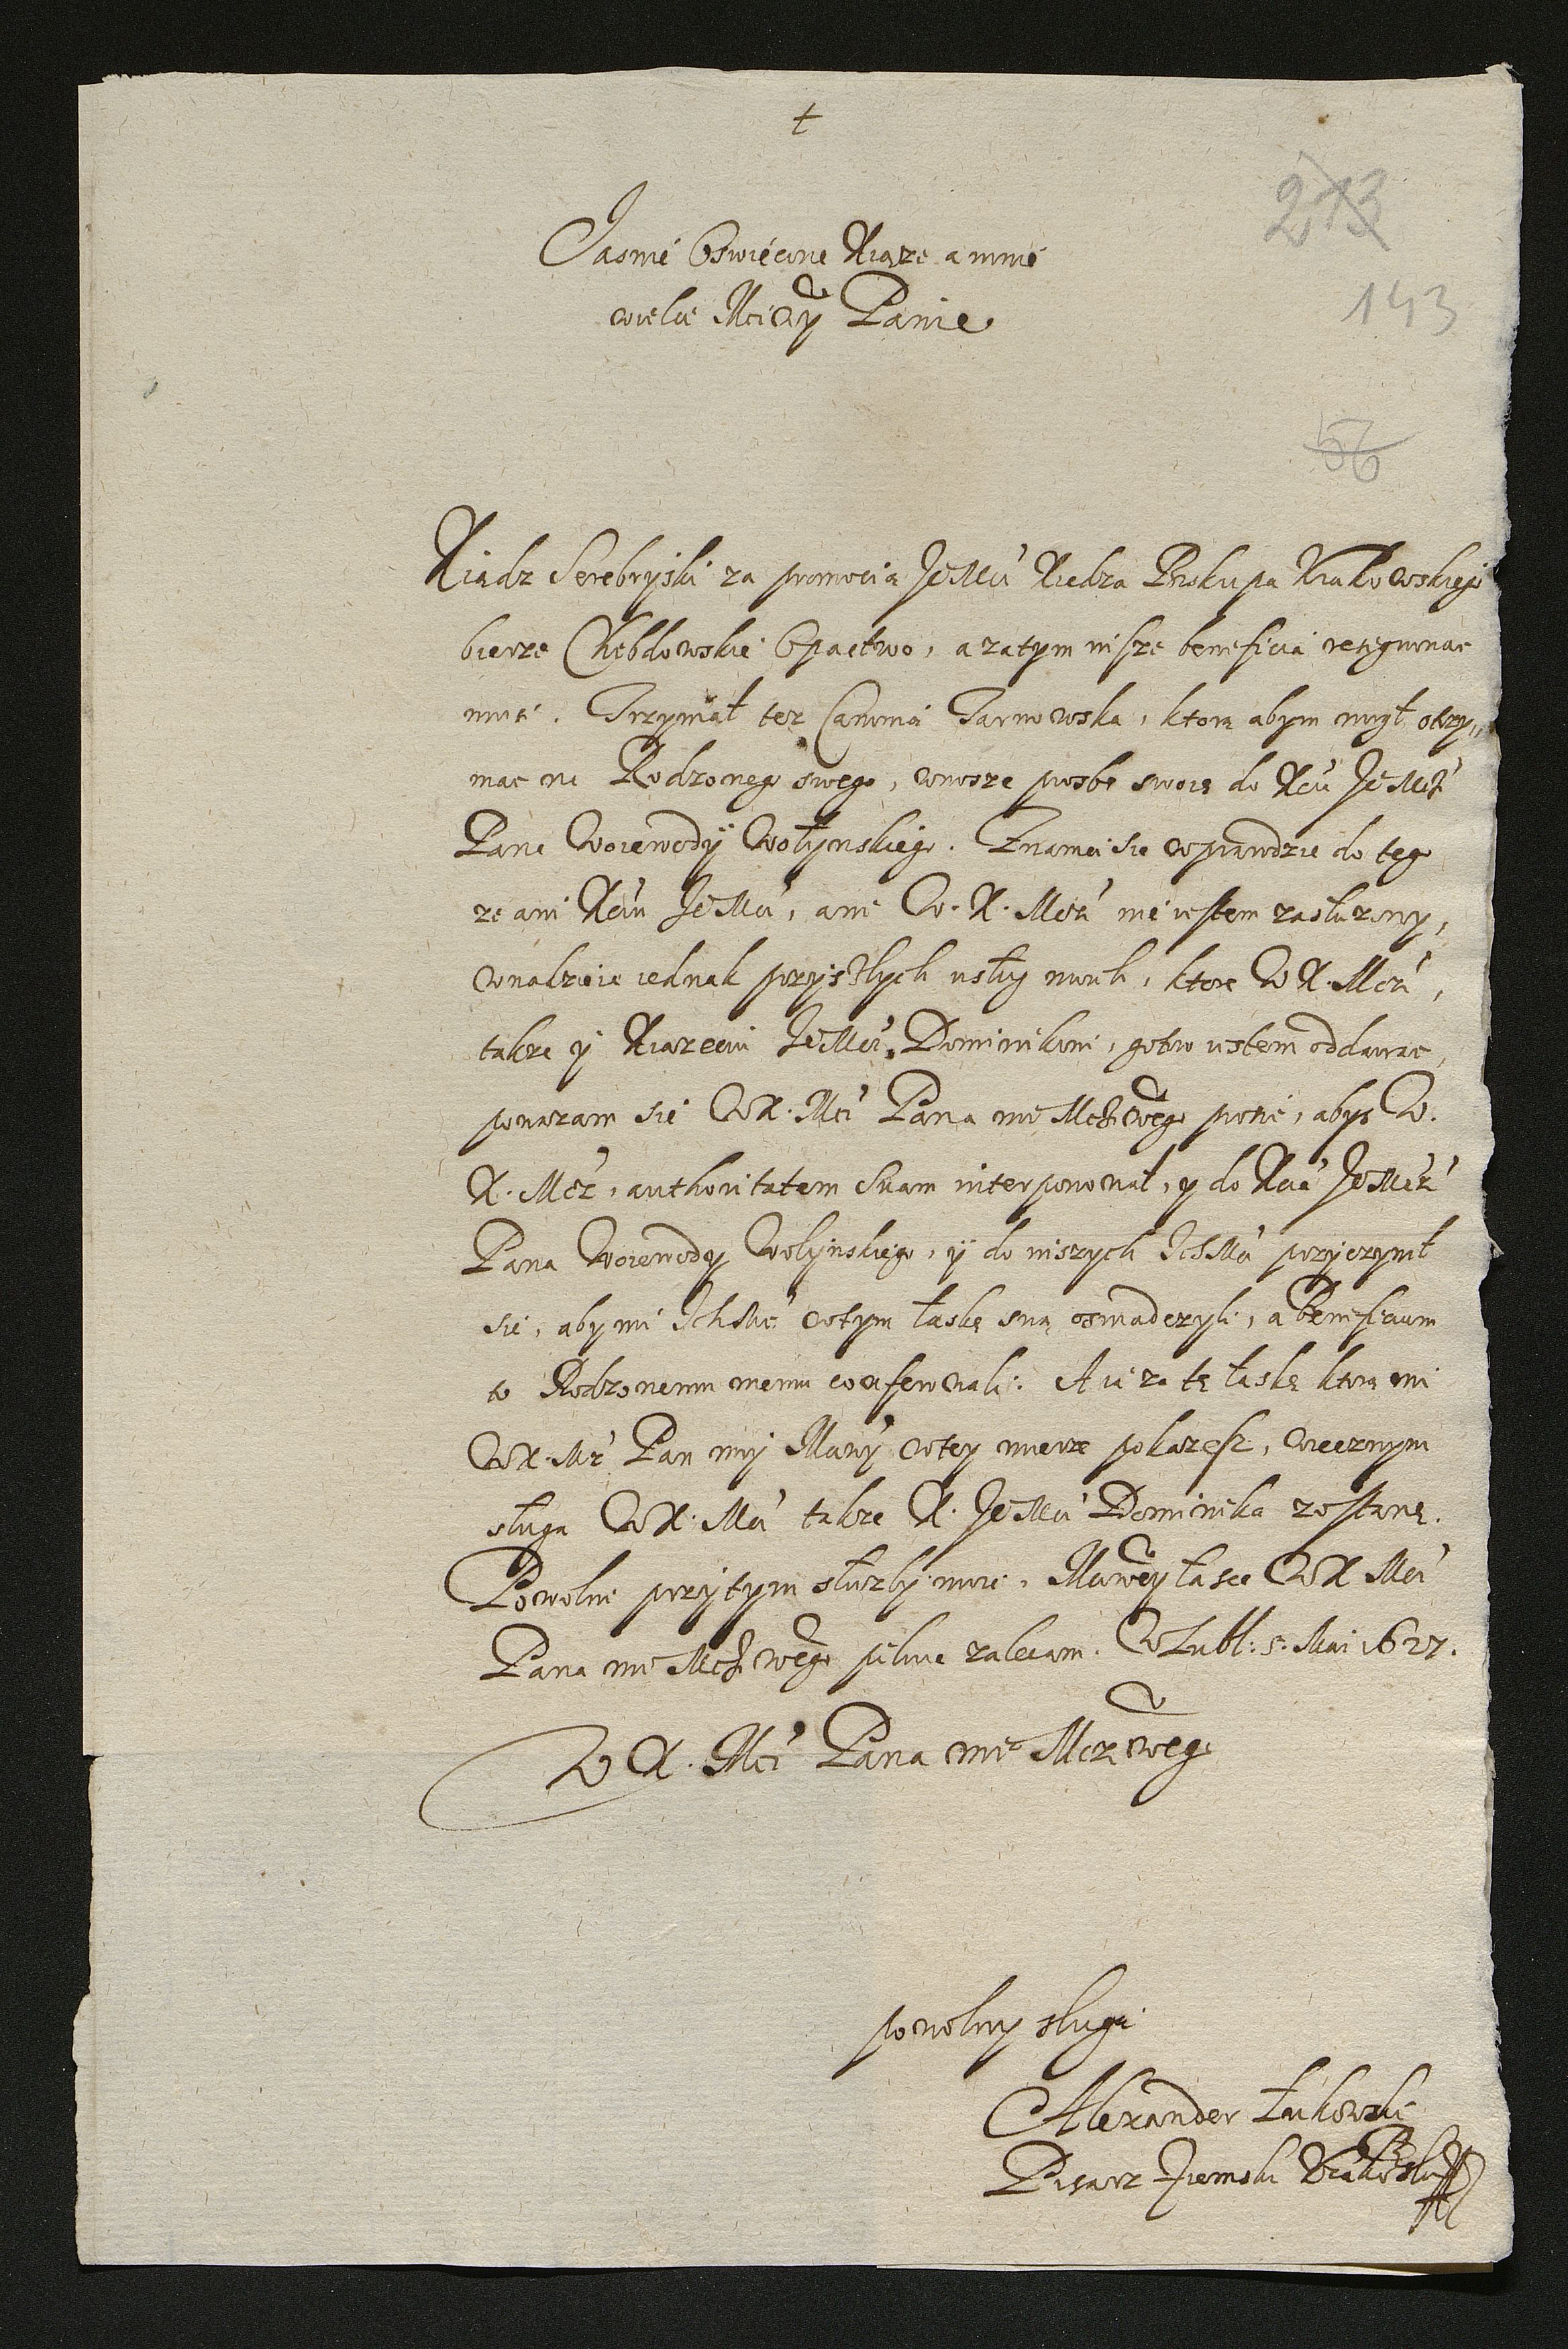 †
213
Jasnie Oswiecone Xiąze a mnie
wielce Mciwy Panie
143
56
Xiądz Serebryski za promocią JeMci Xiedza Biskupa Krakowskiego
bierze Chebdowskie Opactwo, a zatym insze beneficia resignowac
musi. Trzymał tez Canonią Tarnowską, ktorą abym mogł otrzy„
mac na Rodzonego swego, wnosze prosbe swoię do Xcia JeMci
Pana Woiewody Wołynskiego. Znamci sie wprawdzie do tego
ze ani Xciu JeMci, ani W. X. Mci nie iestem zasłuzony,
w nadzieie iednak przyszłych usług moich, ktore W X. Mci,
takze y Xiazeciu JeMci Dominikowi, gotow iestem oddawac,
powazam sie W X. Mci Pana me Mciwego prosic, abys W.
X. Mc, authoritatem suam interponował, y do Xcia JeMci
Pana Woiewody Wolynskiego, y do inszych IchMci przyczynił
sie, aby mi IchMc w tym łaskę swą oswiadczyli, a beneficium
to Rodzonemu memu conferowali. A ia za tę łaskę ktorą mi
W X. Mc Pan moy Mciwy w tey mierze pokazesz, wiecznym
sługą W X. Mci takze X. JeMci Dominika zostanę.
Powolne przytym słuzby moie, Mciwey łasce W X Mci
Pana me Mciwego pilnie zalecam. W Lubl: 5. Mai 1627.
W X. Mci Pana me Mciwego
powolny sługa
Alexander Łukowski
Pisarz Ziemski Krakowski